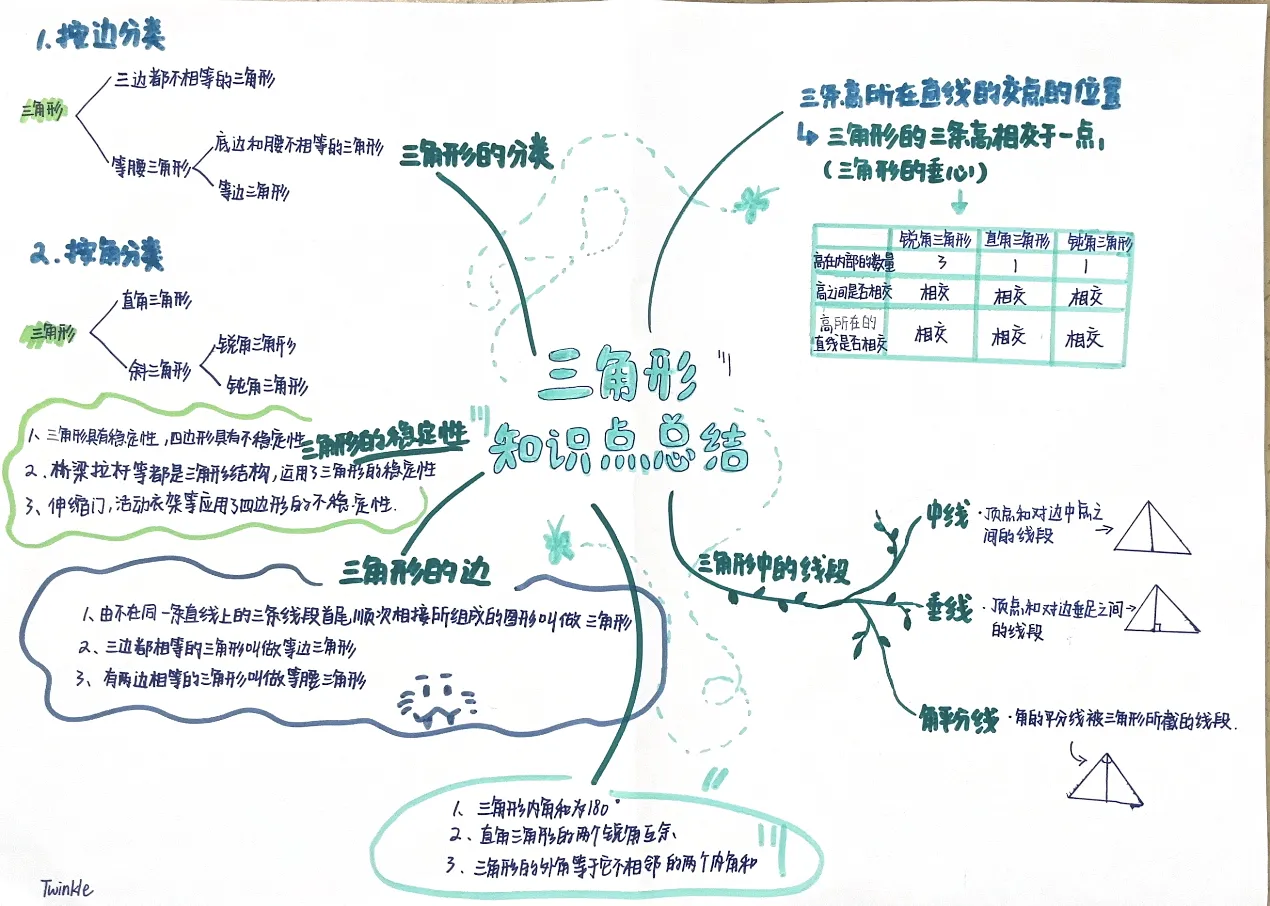 三角形
知识点总结
三角形的分类
1.按边分类
三角形
三边都不相等的三角形
等腰三角形
底边和腰不相等的三角形
等边三角形
2.按角分类
三角形
直角三角形
斜三角形
锐角三角形
钝角三角形
三角形的稳定性
1、三角形具有稳定性,四边形具有不稳定性
2.桥梁拉杆等都是三角形结构,运用了三角形的稳定性
3、伸缩门,活动衣架等应用了四边形的不稳定性.
三角形的边
1、由不在同一条直线上的三条线段首尾顺次相接所组成的图形叫做三角形
2、三边都相等的三角形叫做等边三角形
3、有两边相等的三角形叫做等腰三角形
1、三角形内角和为180°
2、直角三角形的两个锐角互余、
3、三角形的外角等于它不相邻的两个内角和
三条高所在直线的交点的位置
三角形的三条高相交于一点,
(三角形的垂心)
锐角三角形 直角三角形 钝角三角形
高在内部的数量 3 1 1
高之间是否相交 相交 相交 相交
高所在的
直线是否相交 相交 相交 相交
三角形中的线段
中线·顶点和对边中点之
间的线段
垂线·顶点和对边垂足之间
的线段
角平分线·角的平分线被三角形所截的线段.
Twinkle